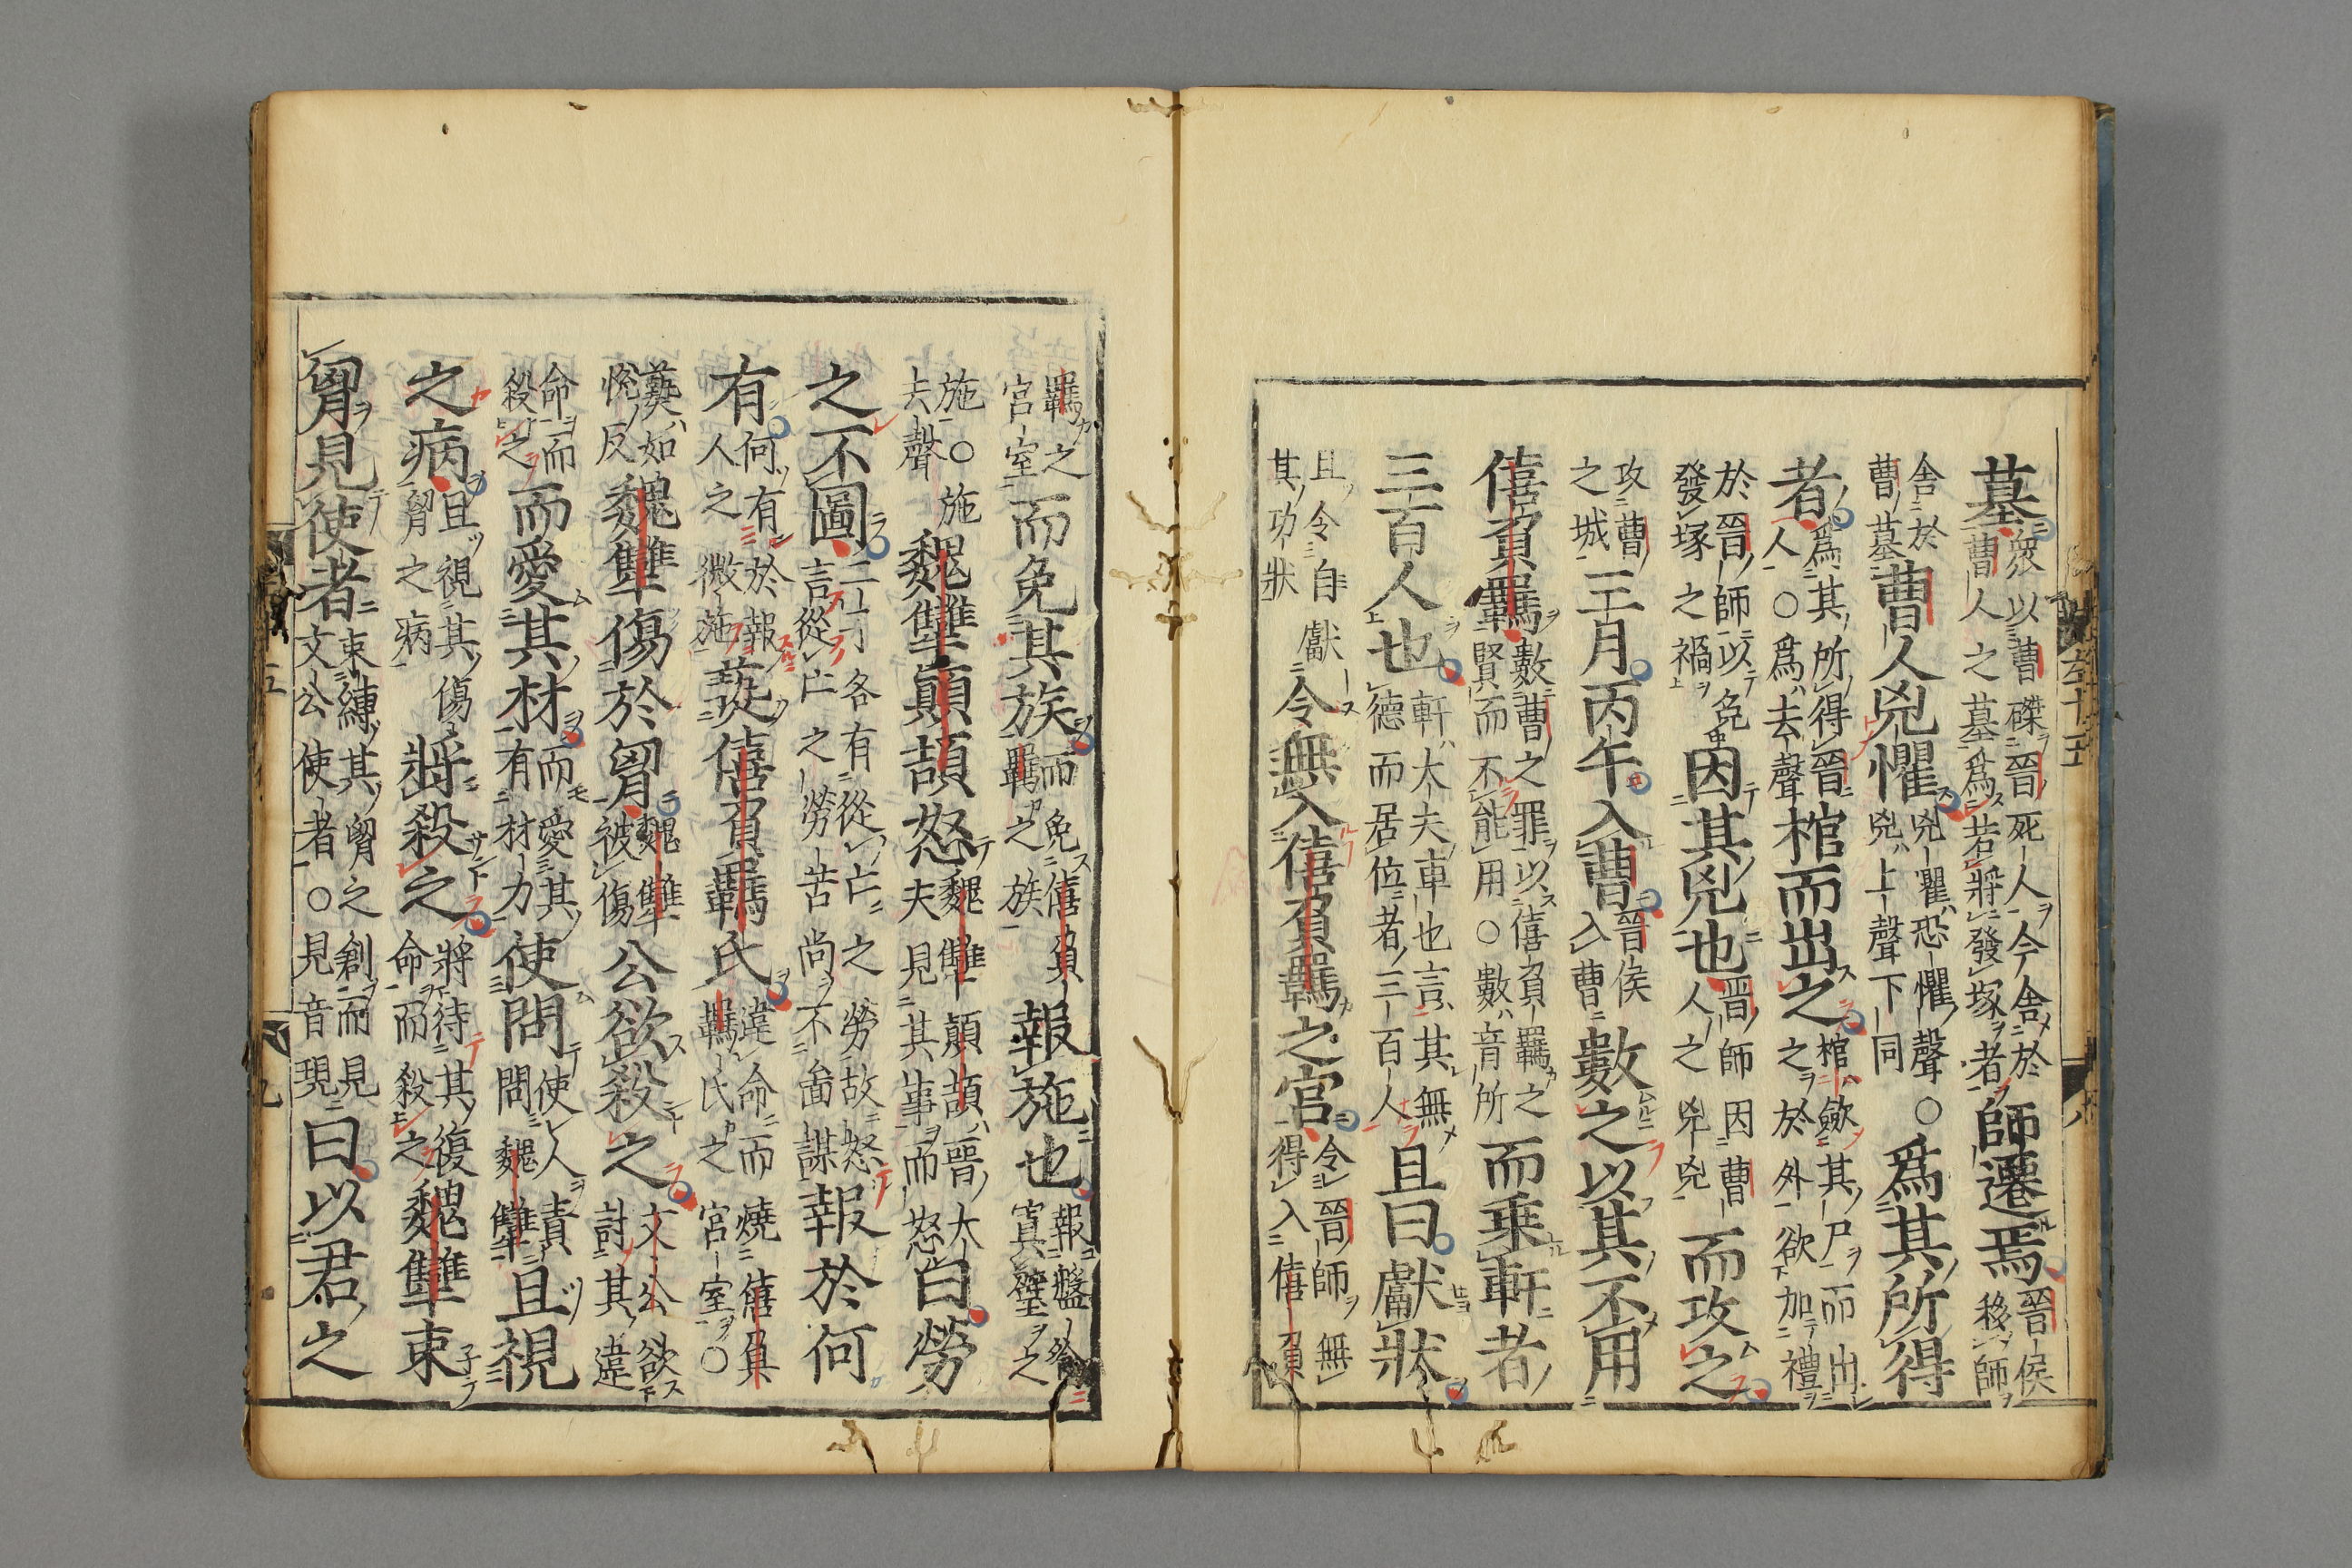 左十五
八
墓衆以曹磔晉死人今舍於曹人之墓爲若將發塚者師遷焉晉侯移師
舍於曹墓曹人兇懼兇懼恐懼聲○兇上聲下同爲其所得
者爲其所得晉人○爲去聲棺而出之棺歛其尸而出之於外欲加禮
於晉師以免發塚之禍因其兇也晉師因曹人之兇兇而攻之
攻曹之城三月丙午入曹晉侯入曹數之以其不用
僖負羈數曹之罪以僖負羈之賢而不能用○數音所而乘軒者
三百人也軒大夫車也言其無德而居位者三百人且曰獻狀
且令自獻其功狀令無入僖負羈之宮令晉師無得入僖負
羈之宮室而免其族而免僖負羈之族報施也報盤飧寘璧之
施○施去聲魏犨顛頡怒魏犨顛頡晉大夫見其事而怒曰勞
之不圖二子各有從亡之勞故怒言從亡之勞苦尚不啚謀報於何
有何有於報人之微施爇僖負羈氏違命而燒僖負羈氏之宮室○
爇如恱反魏犨傷於胷魏犨被傷公欲殺之文公欲討其違
命而殺之而愛其材而愛其有材力使問使人責問魏犨且視
之病且視其傷胷之病將殺之將待其復命而殺之魏犨束
胷見使者束縛其胷之創而見文公使者○見音現曰以君之